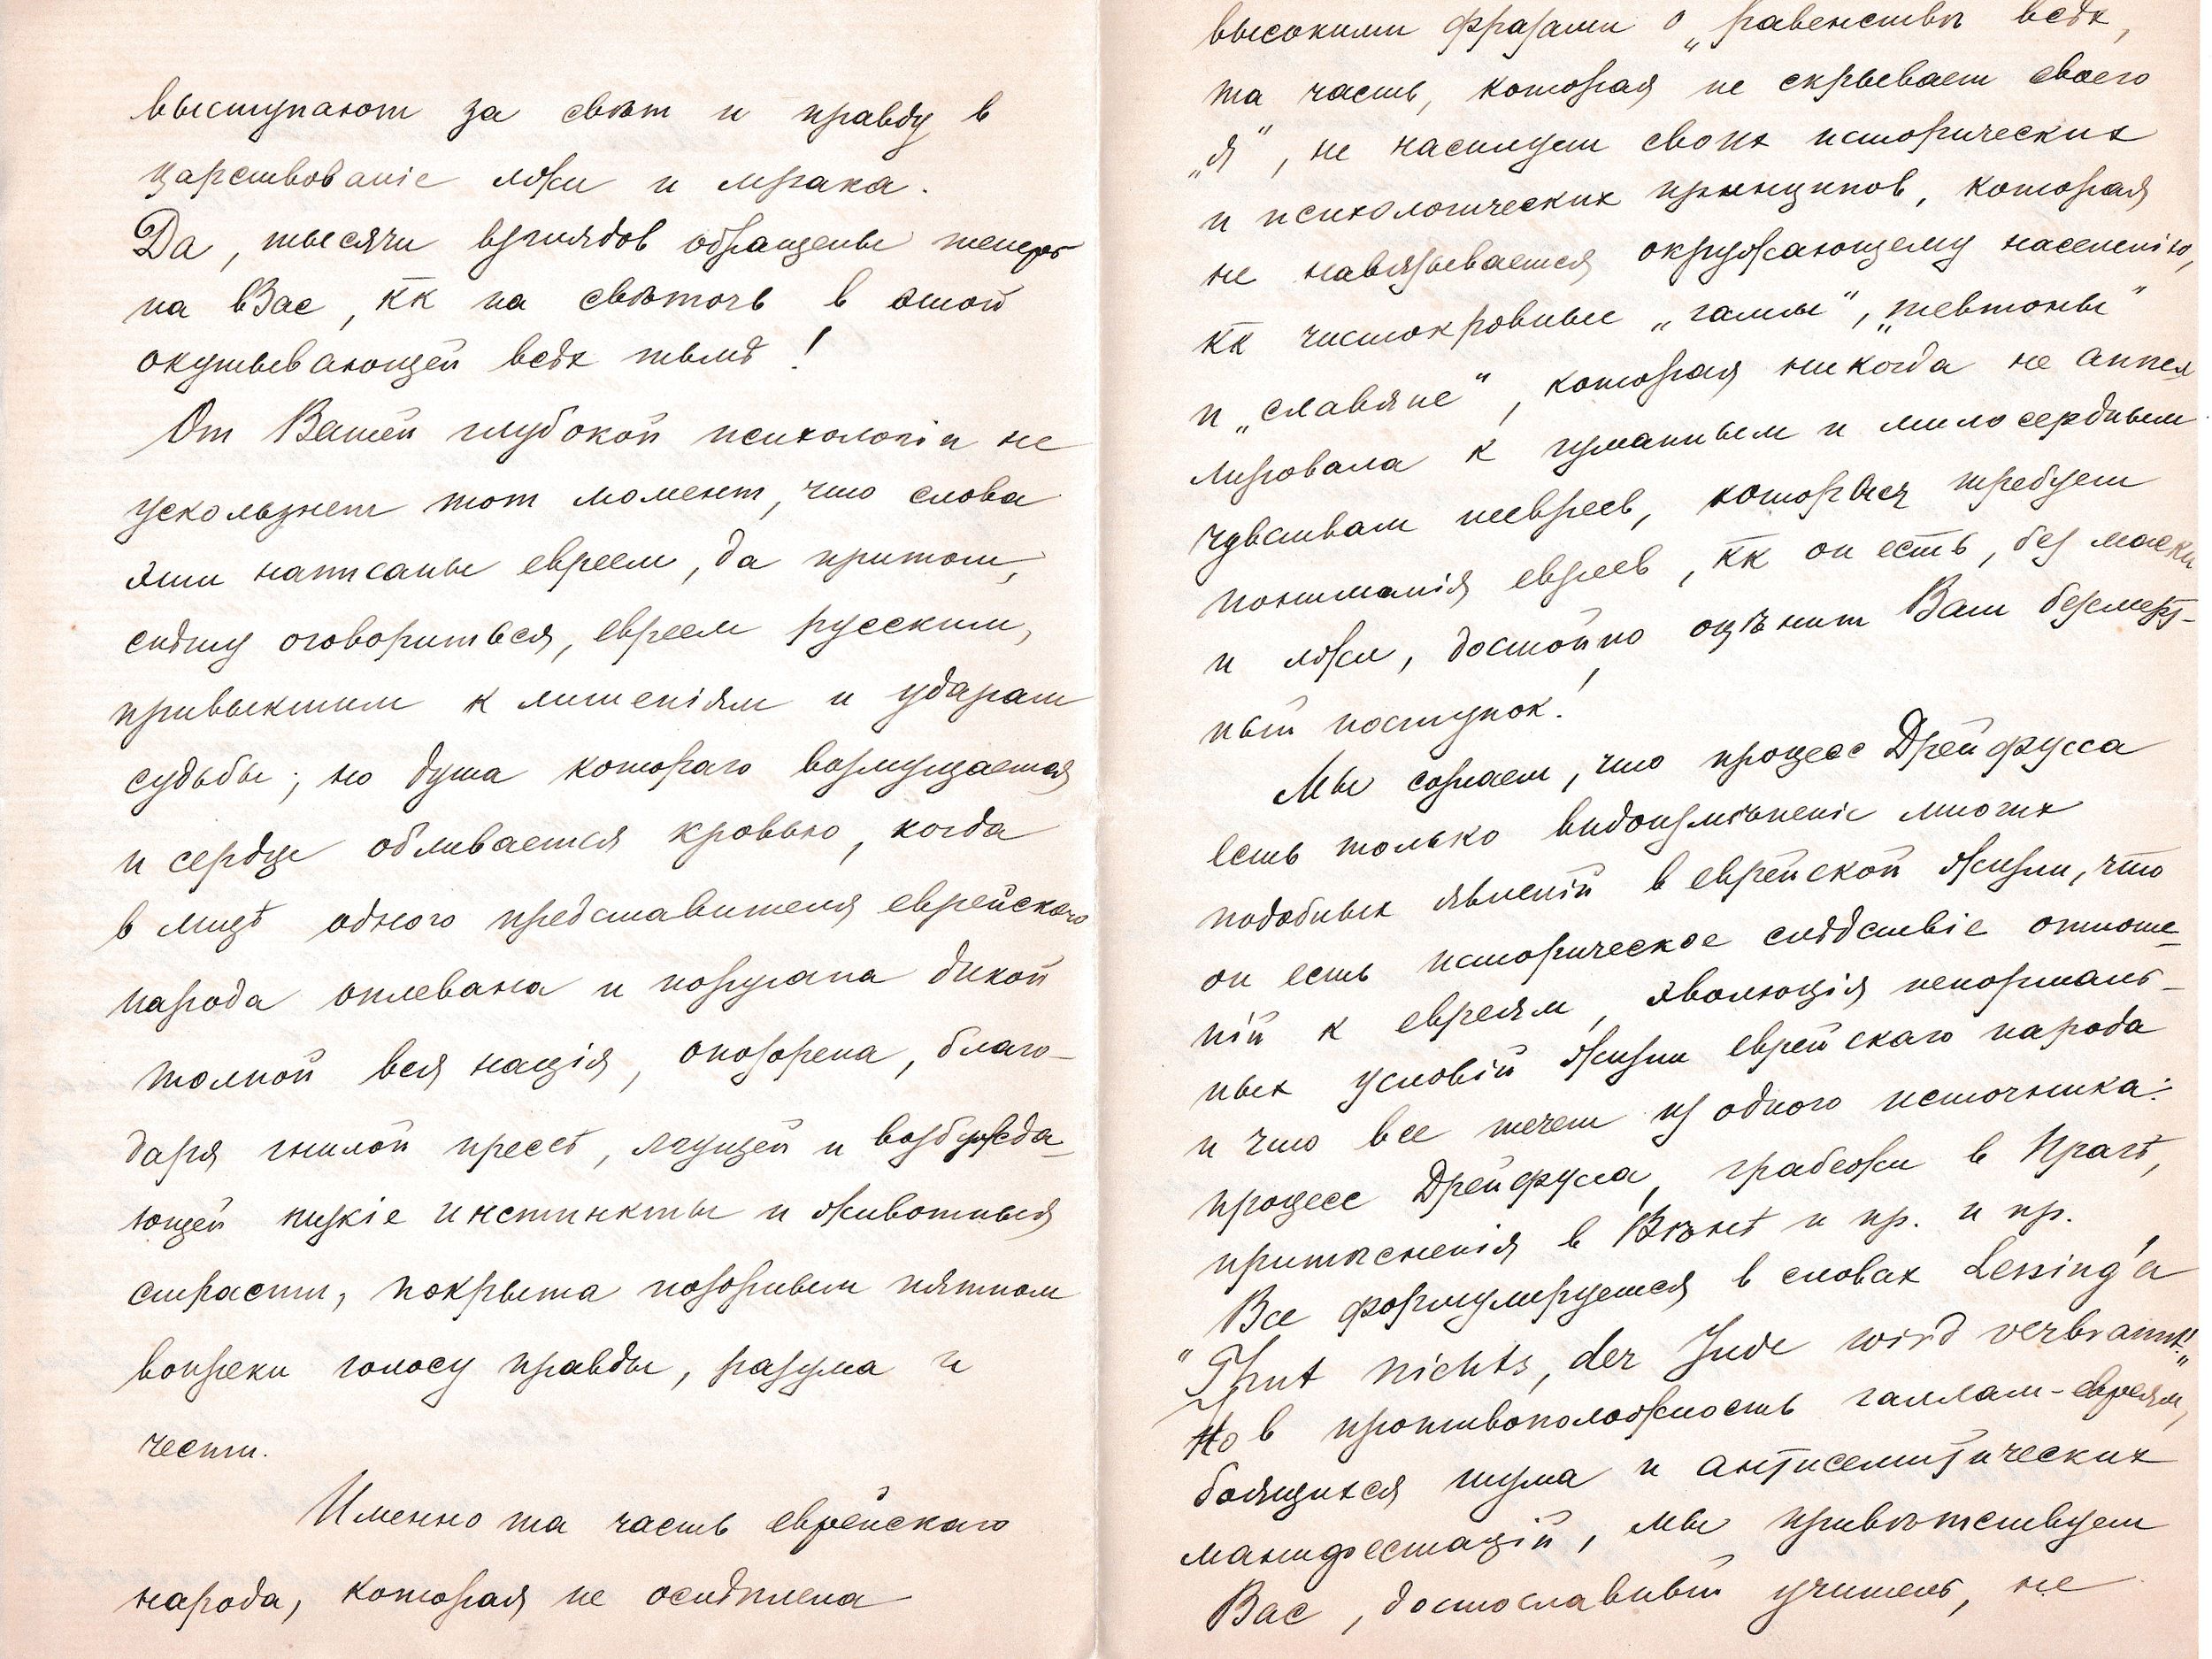 выступают за свѣт и правду в
царствованіе лжи и мрака.
Да, тысячи взглядов обращены теперь
на Вас, кк на свѣточь в этой
окутывающей всѣх тьмѣ!
От Вашей глубокой психологіи не
ускользнет тот момент, что слова
эти написаны евреем, да притом,
спѣшу оговориться, евреем русским,
привыкшим к лишеніям и ударам
судьбы; но душа котораго возмущается
и сердце обливается кровью, когда
в лицѣ одного представителя еврейскаго
народа оплевана и поругана дикой
толпой вся нація, опозорена, благо-
даря гнилой прессѣ, лгущей и возбужда-
ющей низкіе инстинкты и животныя
страсти, покрыта позорным пятном
вопреки голосу правды, разума и
чести.
Именно та часть еврейскаго
народа, которая не ослѣплена
высокими фразами о „равенствѣ всѣх,
та часть, которая не скрывает своего
„я“, не насилует своих исторических
и психологических принципов, которая
не навязывается окружающему населенію,
кк чистокровные „галлы“, „тевтоны“
и „славяне“, которая никогда не аппел-
лировала к гуманным и милосердным
чувствам неевреев, которая требует
пониманія евреев, кк он есть, без маски
и лжи, достойно оцѣнит Ваш безмерт-
ный поступок!
Мы сознаем, что процесс Дрейфусса
есть только видоизмѣненіе многих
подобных явленій в еврейской жизни, что
он есть историческое слѣдствіе отноше-
ній к евреям, эволюція ненормаль-
ных условій жизни еврейскаго народа
и что все течет из одного источника:
процесс Дрейфусса, грабежи в Прагѣ,
притѣсненія в Вѣнѣ и пр. и пр.
Все формулируется в словах Lessing'а
"Thut nichts, der Jude wird verbrannt!"
Но в противоположность галлам-евреям,
боящихся шума и антисемитических
манифестацій, мы привѣтствуем
Вас, достославный учитель, не